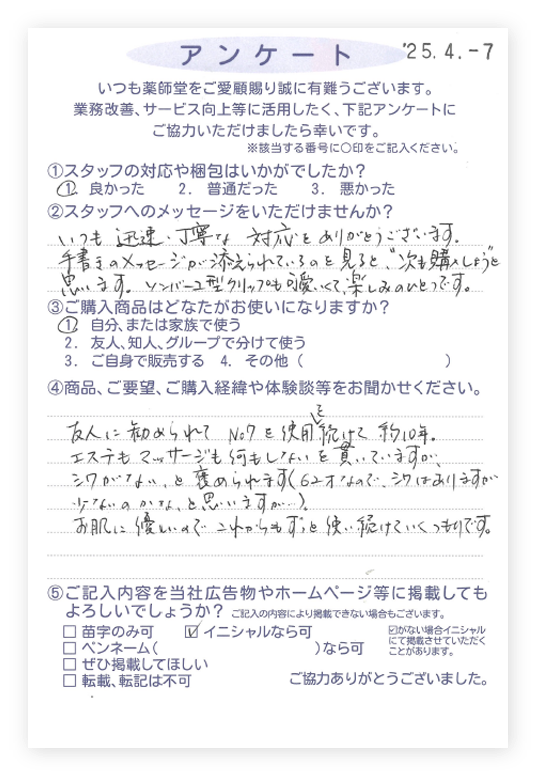 アンケート
'25.4.-7
いつも薬師堂をご愛顧賜り誠に有難うございます。
業務改善、サービス向上等に活用したく、下記アンケートに
ご協力いただけましたら幸いです。
※該当する番号に○印をご記入ください。
①スタッフの対応や梱包はいかがでしたか?
1. 良かった 2. 普通だった 3. 悪かった
②スタッフへのメッセージをいただけませんか?
いつも 迅速、丁寧な 対応を ありがとうございます。
手書きのメッセージが添えられているのを見ると、"次も購入しよう"と
思います。ソンバーユ型クリップも可愛いくて楽しみのひとつです。
③ご購入商品はどなたがお使いになりますか?
1. 自分、または家族で使う
2. 友人、知人、グループで分けて使う
3. ご自身で販売する 4. その他( )
④商品、ご要望、ご購入経緯や体験談等をお聞かせください。
友人に勧められて No7を使用し続けて 約10年。
エステもマッサージも何もしないを貫いていますが、
シワがない、と褒められます(62才なので、シワはありますが
少ないのかな、と思いますが…)。
お肌に優しいので これからもずっと使い続けていくつもりです。
⑤ご記入内容を当社広告物やホームページ等に掲載しても
よろしいでしょうか? ご記入の内容により掲載できない場合もございます。
□ 苗字のみ可 ☑ イニシャルなら可
□ ペンネーム( )なら可
☑がない場合イニシャル
にて掲載させていただく
ことがあります。
□ ぜひ掲載してほしい
□ 転載、転記は不可
ご協力ありがとうございました。